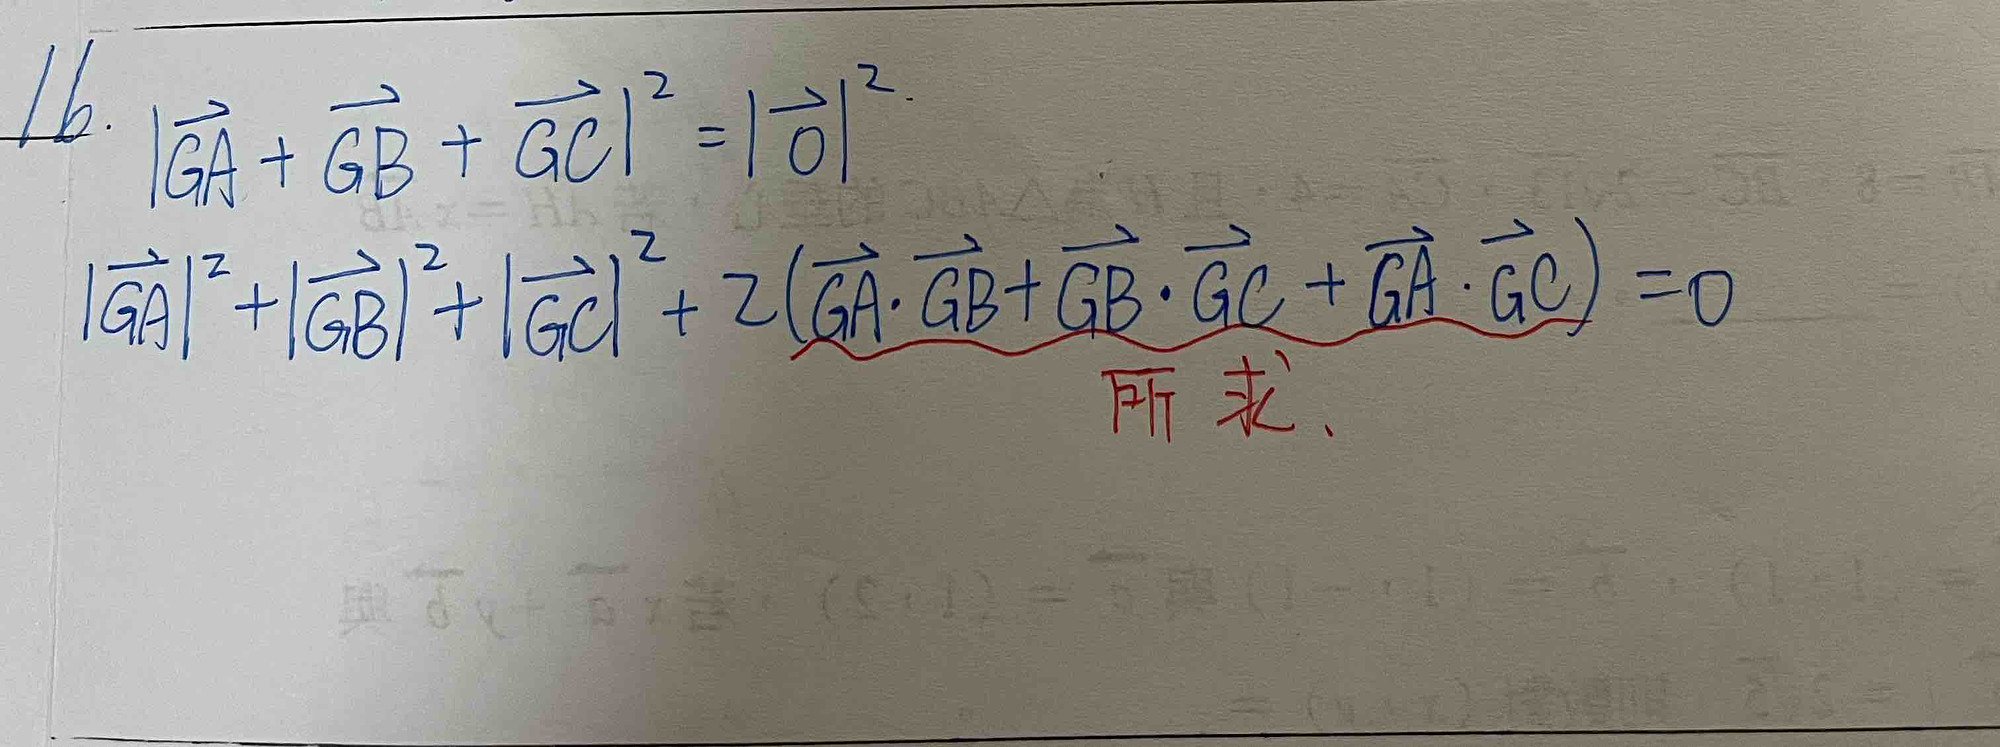 16. |\vec{GA} + \vec{GB} + \vec{GC}|² = |\vec{0}|².
|\vec{GA}|² + |\vec{GB}|² + |\vec{GC}|² + 2(\vec{GA}·\vec{GB} + \vec{GB}·\vec{GC} + \vec{GA}·\vec{GC}) = 0
所求、